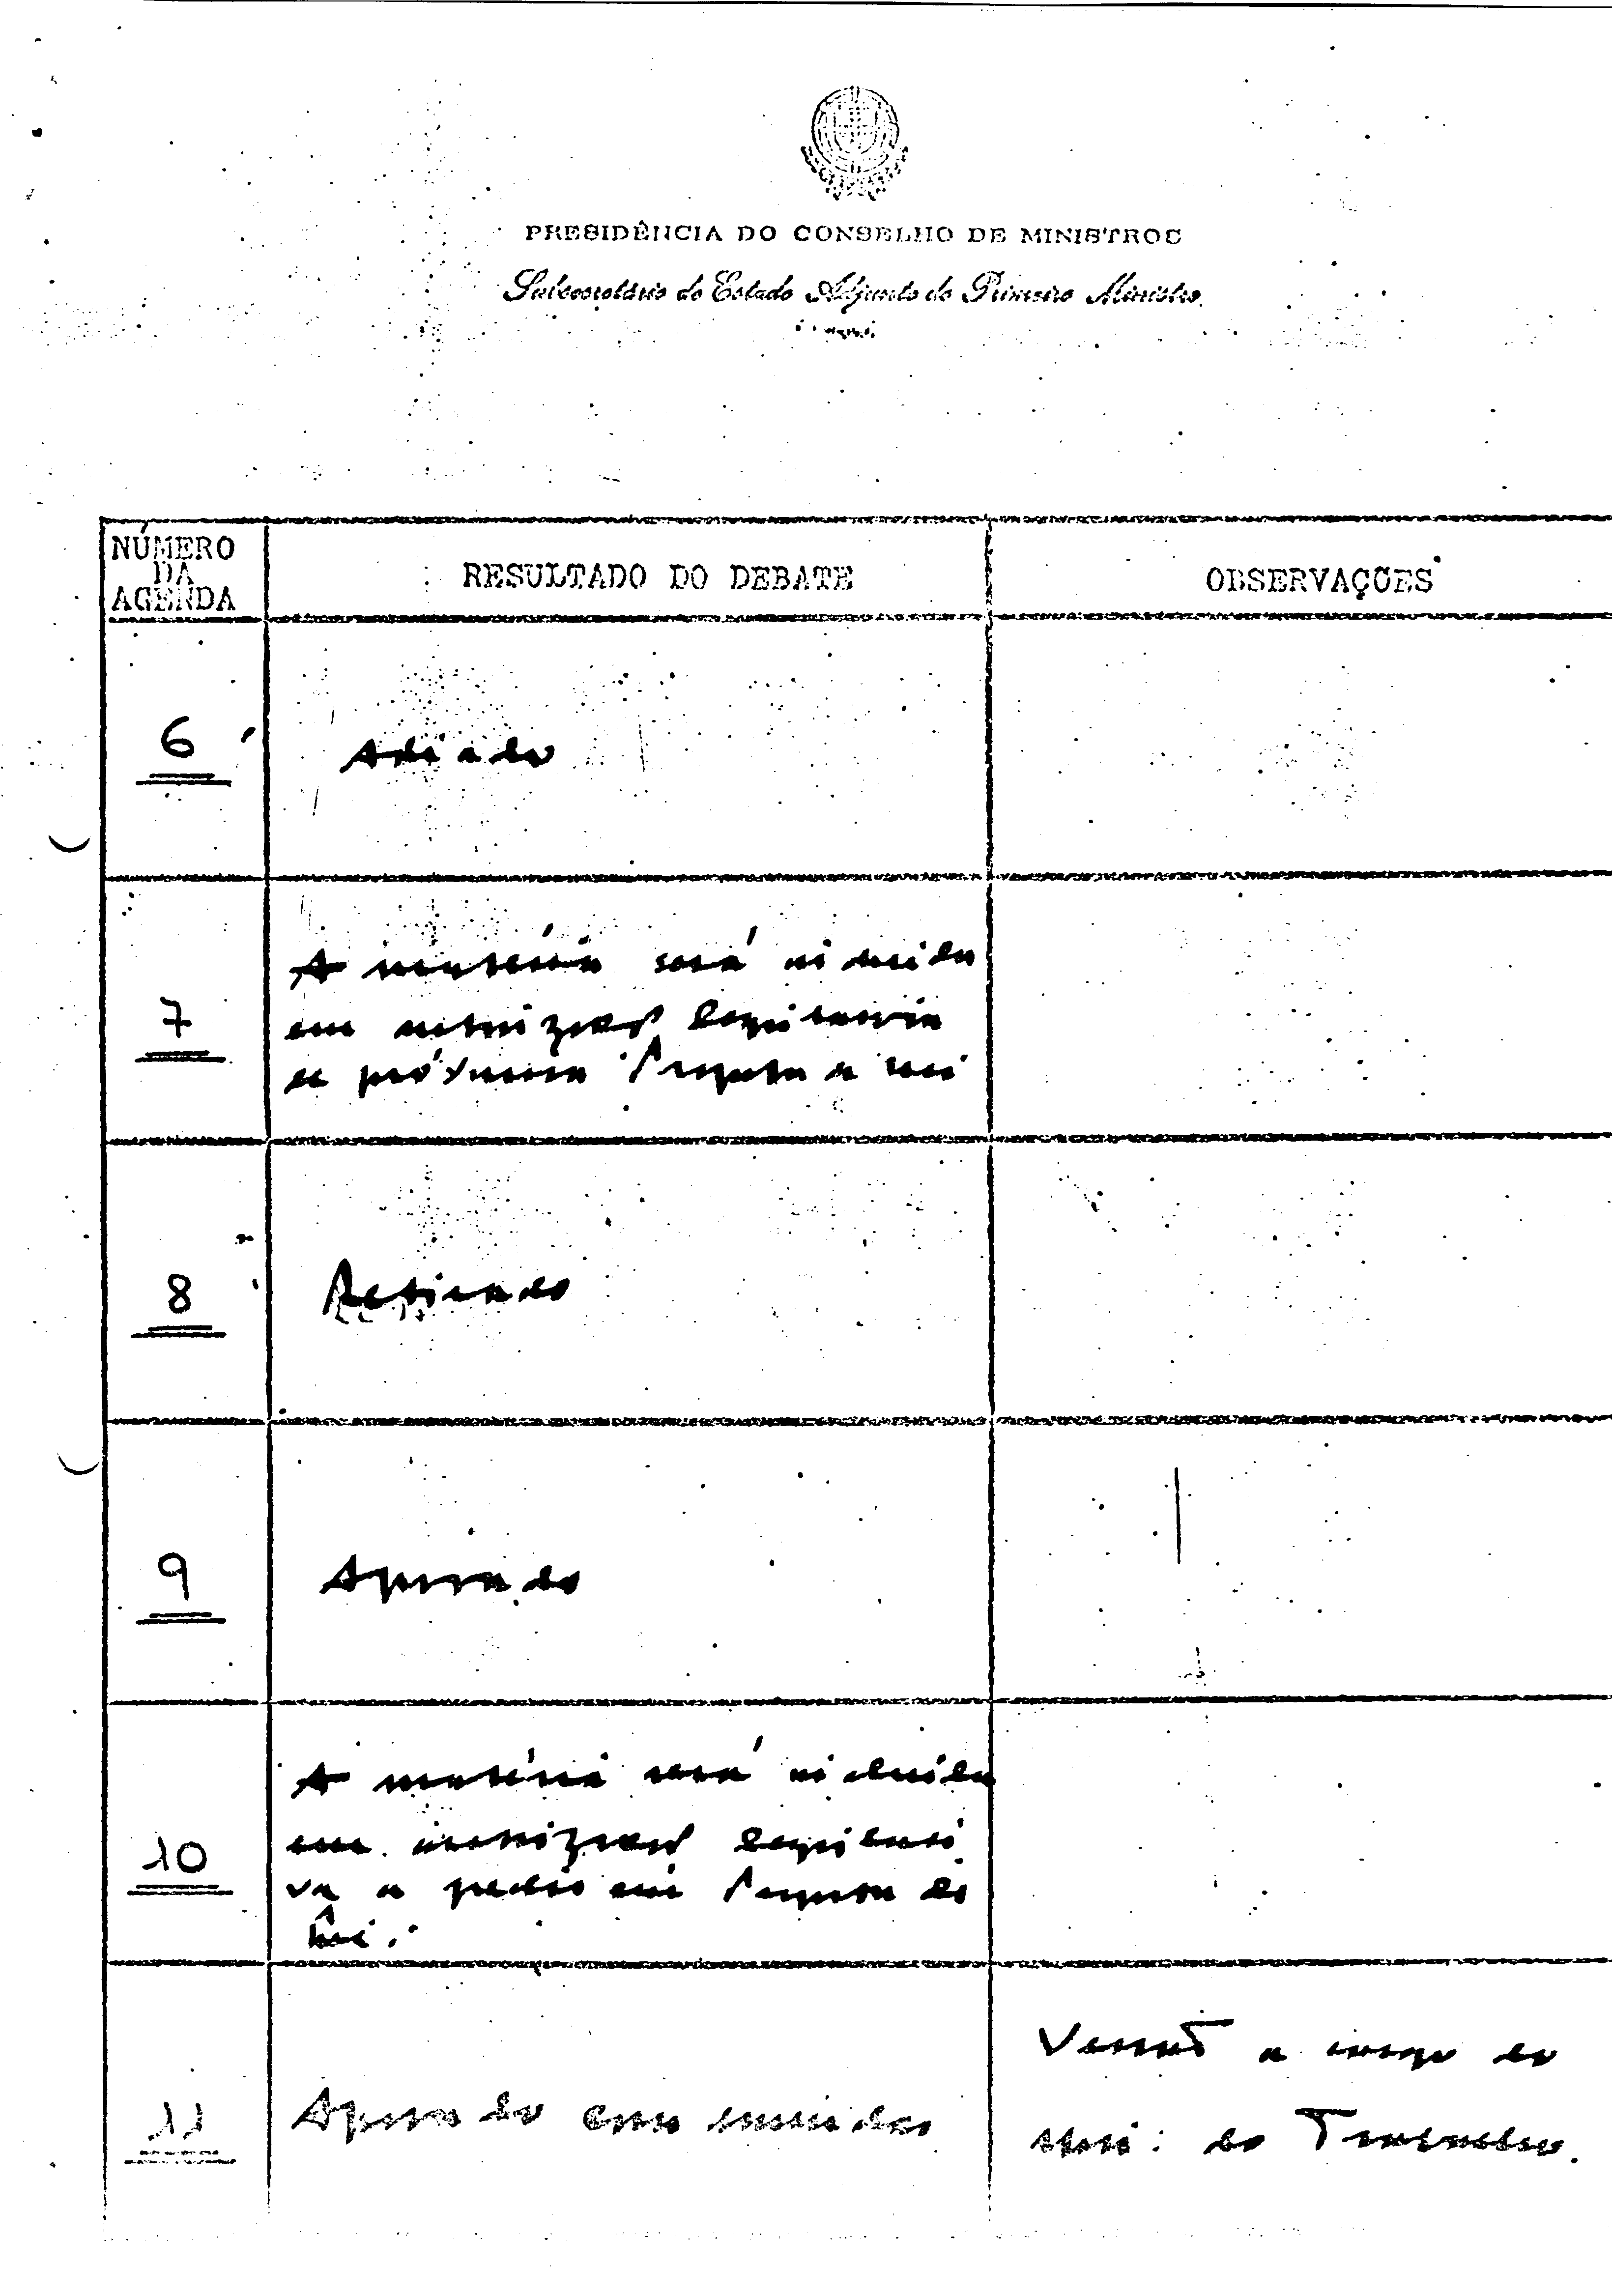 PRESIDÊNCIA DO CONSELHO DE MINISTROS
Subsecretário de Estado Adjunto do Primeiro Ministro
NÚMERO
DA
AGENDA
RESULTADO DO DEBATE
OBSERVAÇÕES
6
Adiado
7
A matéria será incluida
em autorização legislativa
a próxima
8
Retirado
9
Aprovado
10
A matéria será incluida
em autorização legislati
va a pedir em Proposta de
lei.
11
Aprovado com emendas
Versão a cargo do
Mini: do Trabalho.